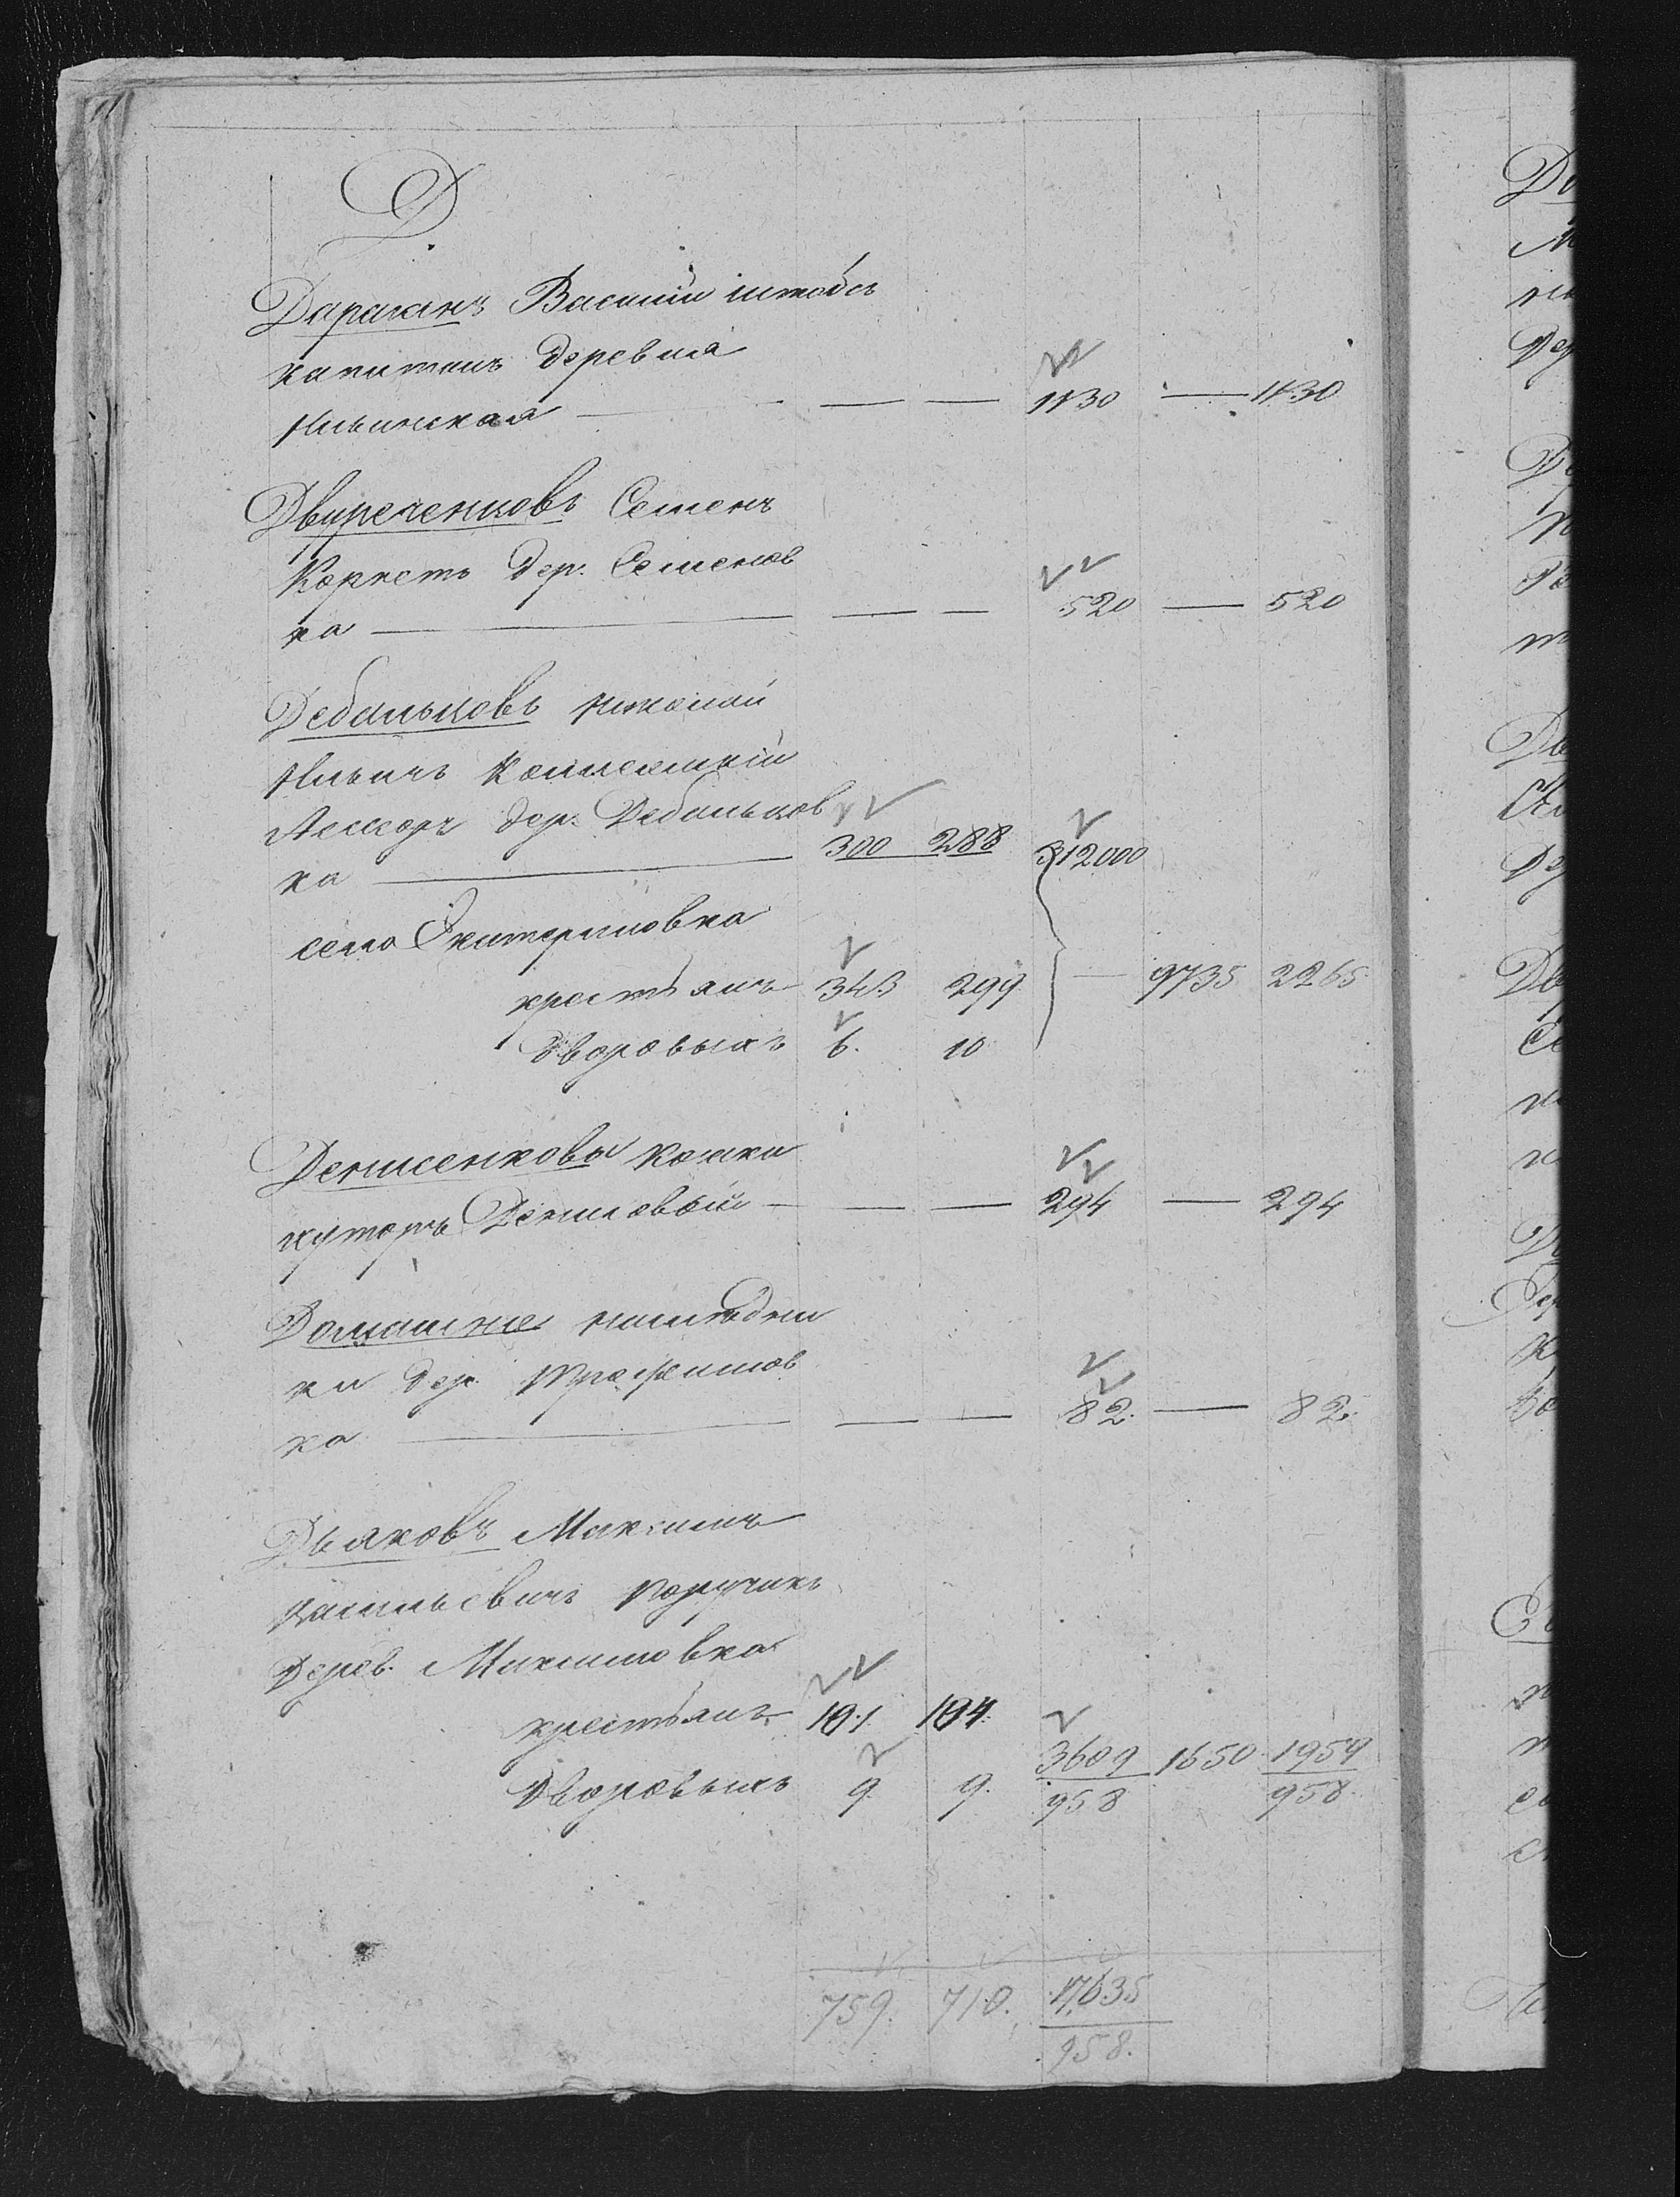 Д.
Дараганъ Василій штабсъ
капитанъ деревня
Ильинская — — — 1130 — 1130
Двуреченцовъ Семенъ
Корнетъ дер. Семенов
ка — — — 520 — 520
Дебальцовъ Николай
Ильичъ Коллежскій
Ассесоръ дер. Дебальцов
ка — 300 288 12000
село Екатериновка
крестьянъ 343 299 — 9735 2265
дворовыхъ 6. 10
Денисенкова
хуторъ — — — 294 — 294
Домашнее наслѣдни
ки дер. Трофимов
ка — — — 82. — 82.
Дьяковъ Максимъ
Васильевичъ Поручикъ
Дерев. Максимовка
крестьянъ 101. 104. 3609 1650 1959
Дворовыхъ 9. 9. 958 958.
759. 710. 17635
958.